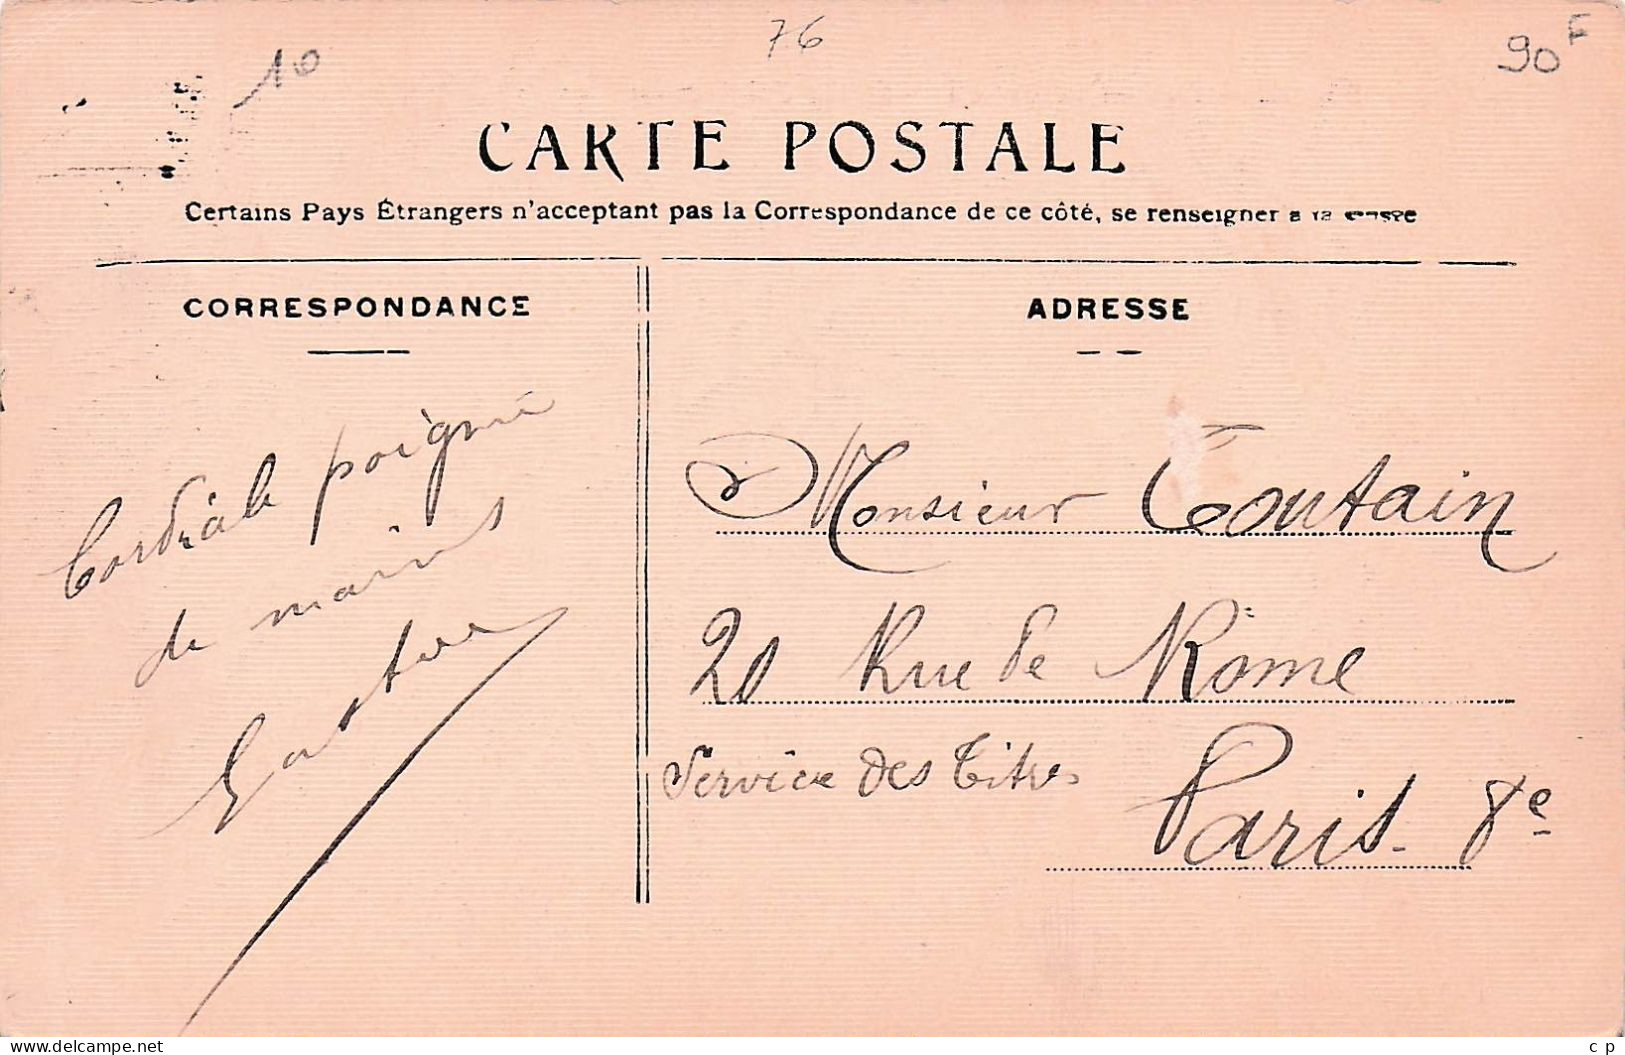 76
90F
10
CARTE POSTALE
Certains Pays Étrangers n'acceptant pas la Correspondance de ce côté, se renseigner à la
CORRESPONDANCE
Cordiale poignée
de mains
ADRESSE
Monsieur Toutain
20 Rue de Rome
Service des Titres
Paris 8e
www.delcampe.net
cp